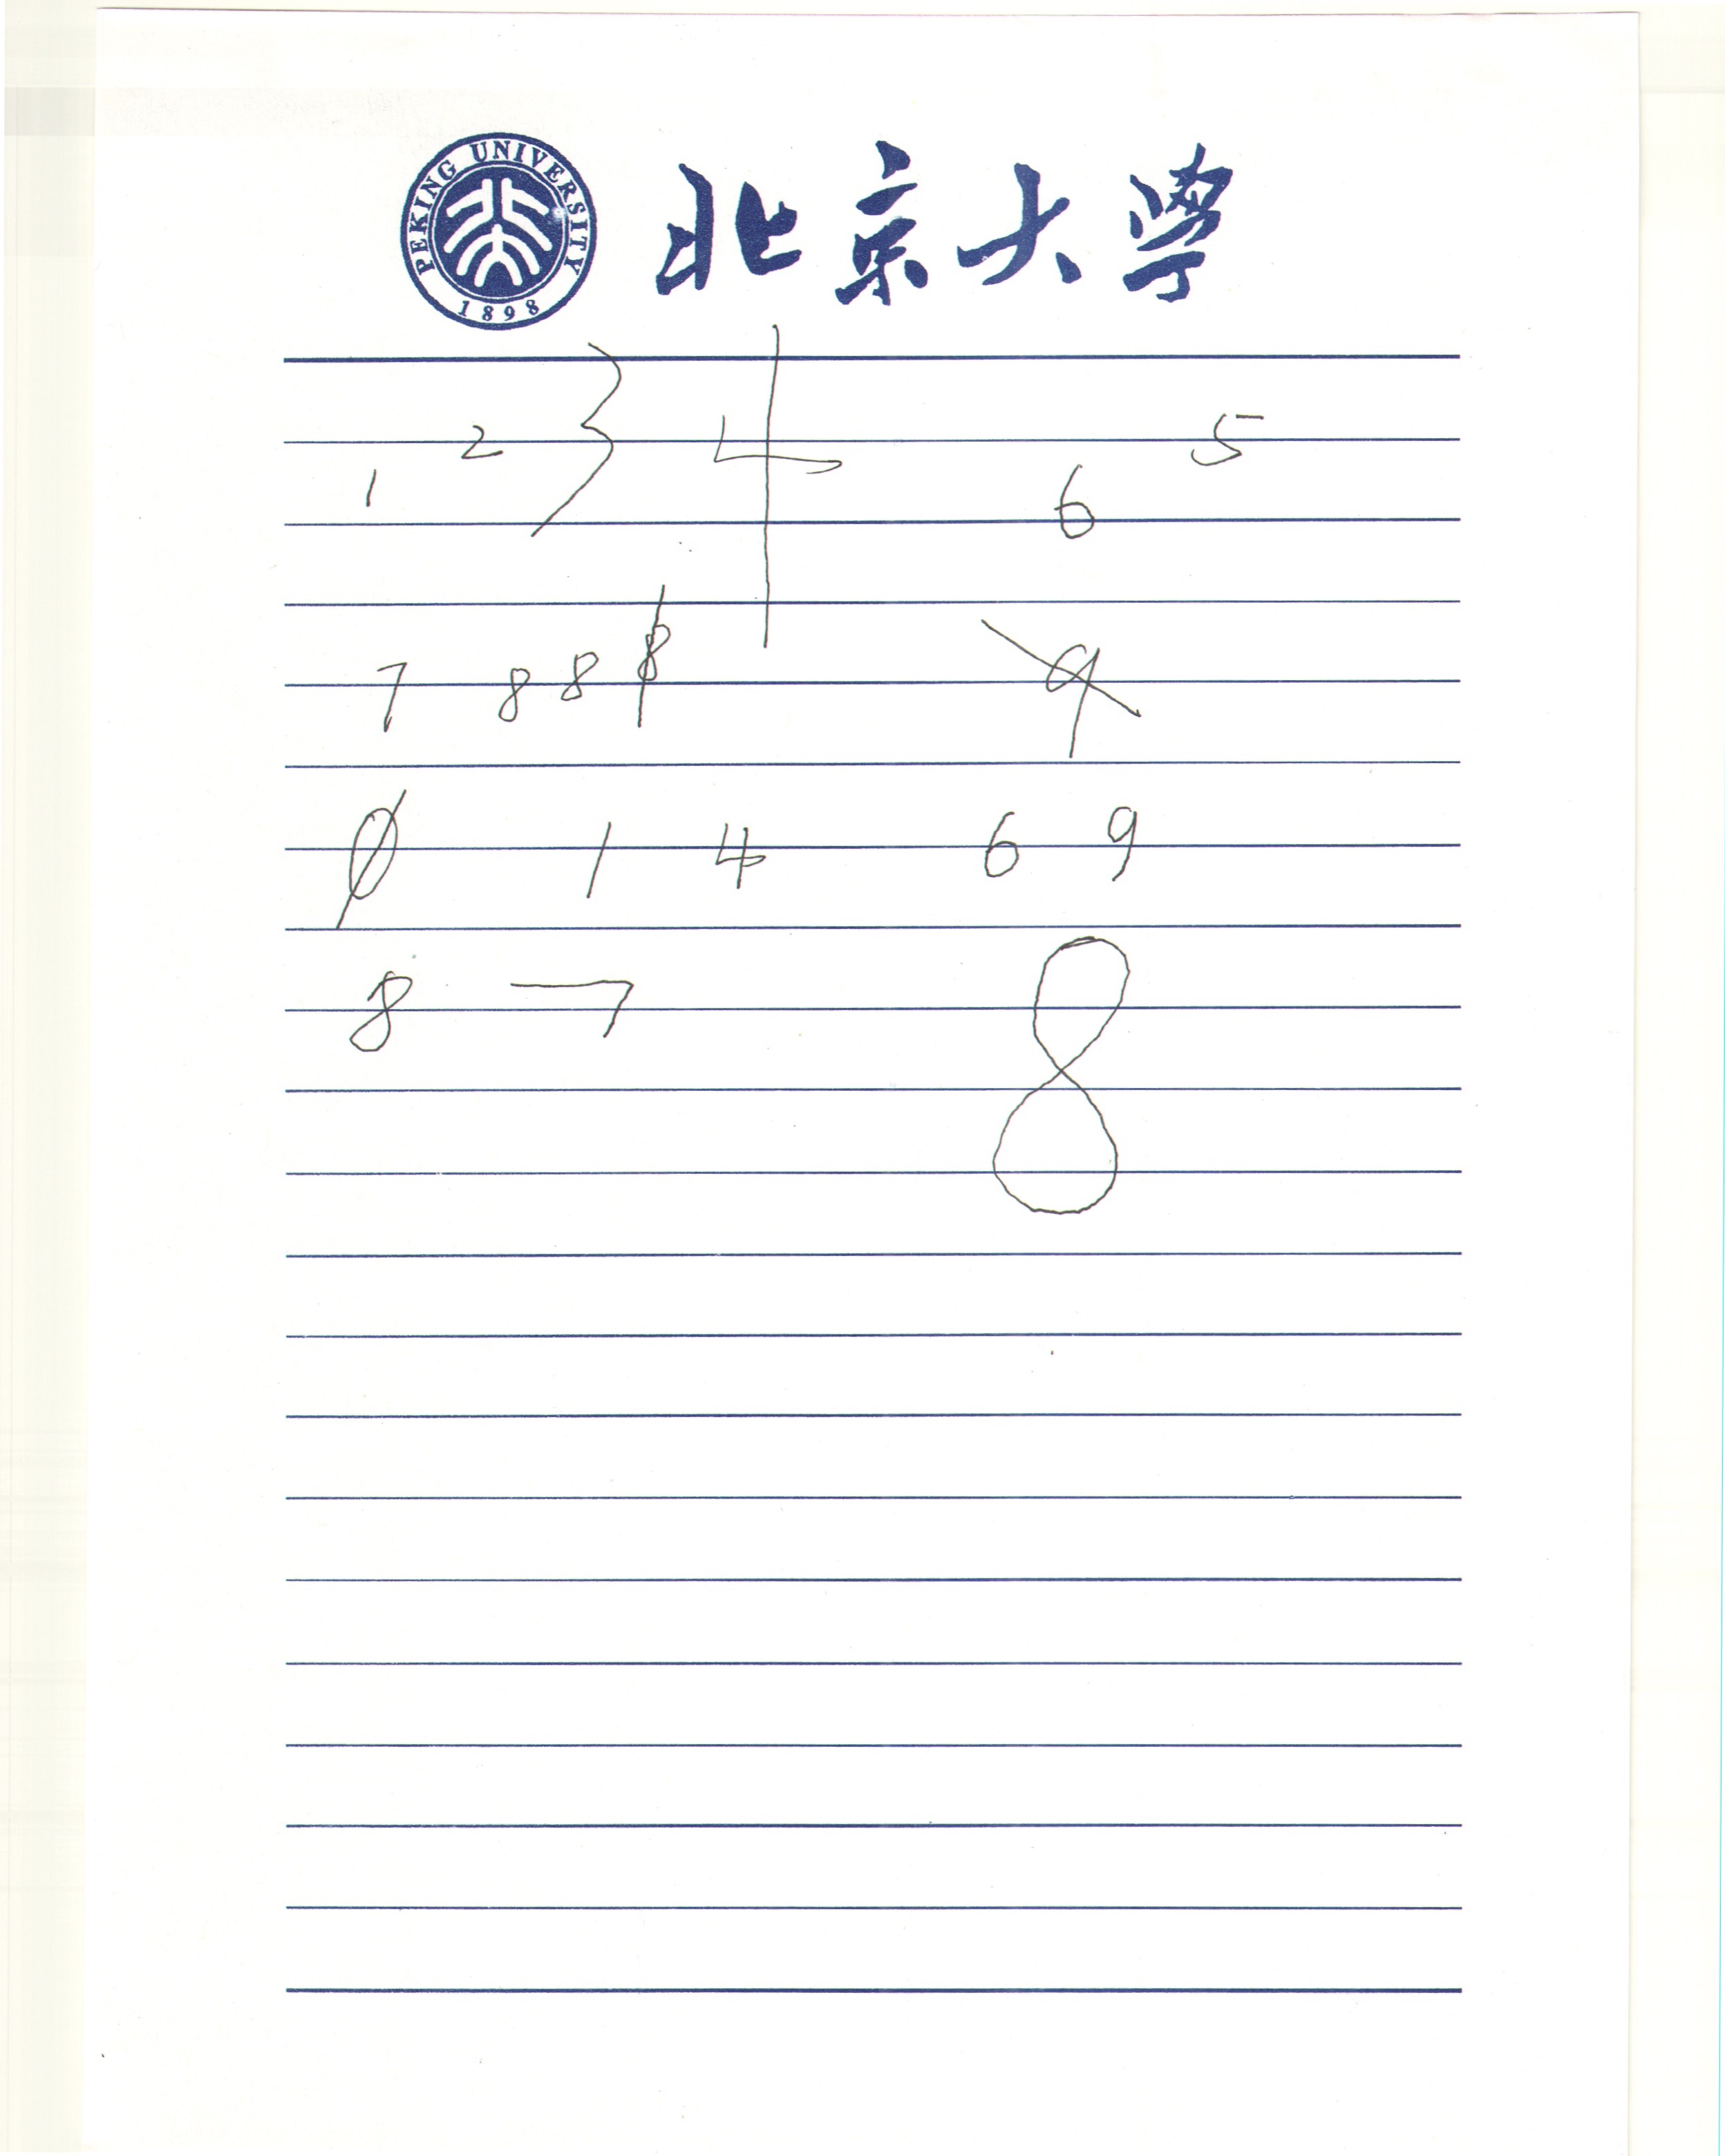 PEKING UNIVERSITY 1898 北京大學
1 2 3 4 6 5
7 8 8 8 9
0 1 4 6 9
8 7 8